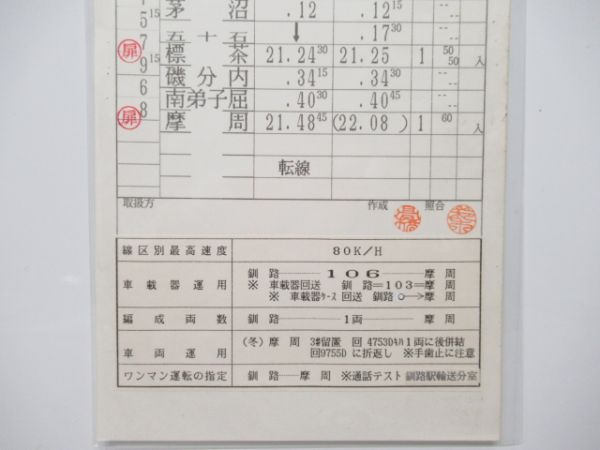 5 15 茅沼 .12 .12 15 ---
7 五十石 ↓ .17 30 ---
扉 9 15 標茶 21.24 30 21.25 1 50 50 入
6 磯分内 .34 15 .34 30 ---
南弟子屈 .40 30 .40 45 ---
扉 8 摩周 21.48 45 (22.08) 1 60 入
転線
取扱方 作成 照合
線区別最高速度 80K/H
車載器運用 釧路―106―摩周
※車載器回送 釧路=103=摩周
※車載器ケース回送 釧路○→摩周
編成両数 釧路―1両―摩周
車両運用 (冬)摩周 3#留置 回4753Dキハ1両に後併結
回9755Dに折返し ※手歯止に注意
ワンマン運転の指定 釧路―摩周 ※通話テスト 釧路駅輸送分室